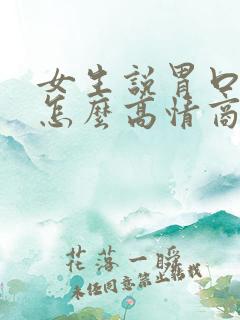 女生說胃口
怎麼高情商
花落一瞬
未經同意禁止轉載